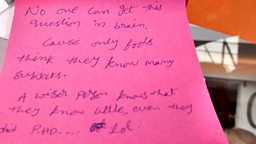 No one can get this
question in brain.
Cause only fools
think they know many
subjects.
A wiser person knows that
they know little, even they
did P.HD.... lol